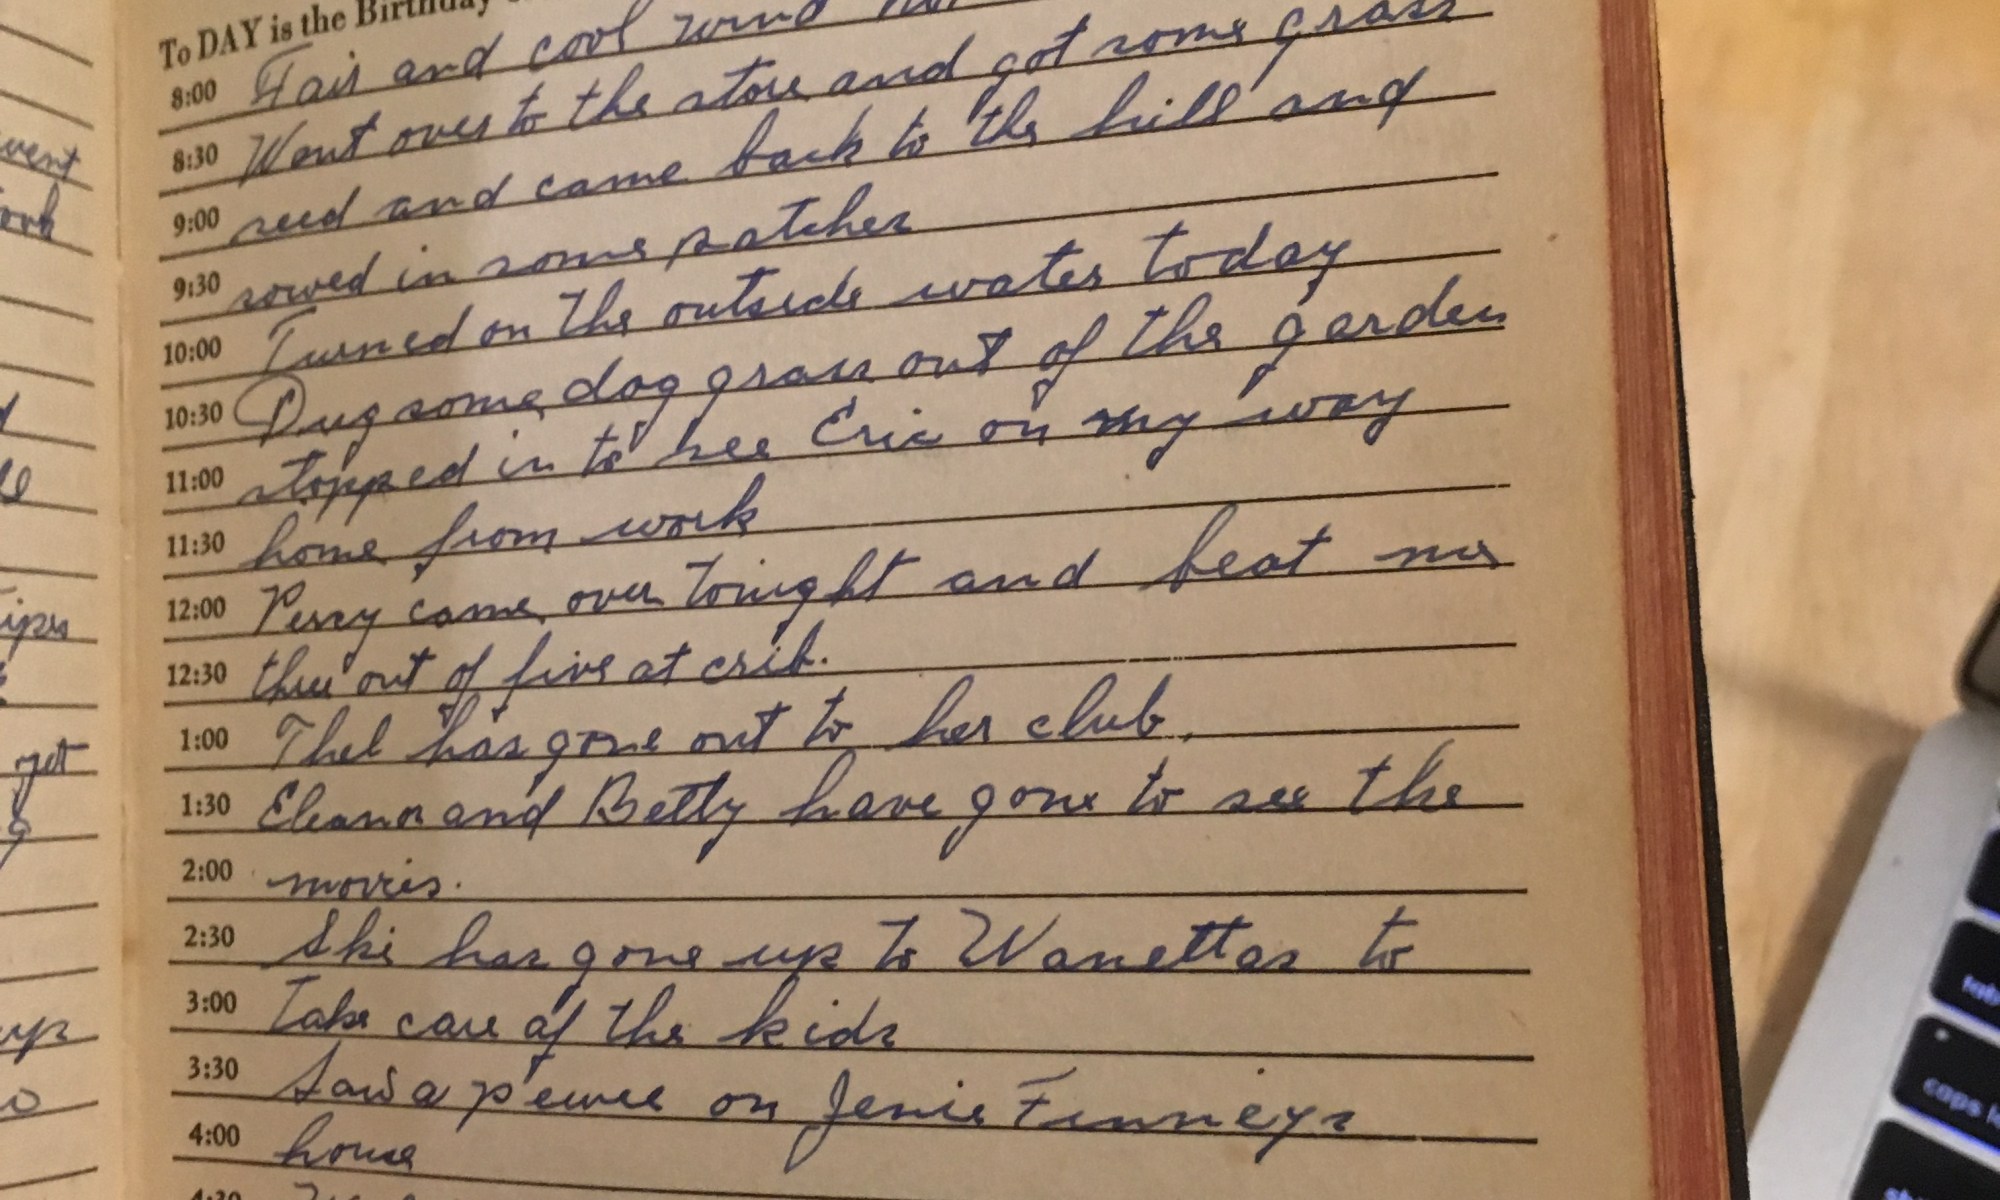 went
To DAY is the Birthday
8:00 Fair and cool wind
8:30 Went over to the store and got some grass
9:00 seed and came back to the hill and
9:30 sowed in some patches
10:00 Turned on the outside water today
10:30 Dug some dog grass out of the garden
11:00 stopped in to see Eric on my way
11:30 home from work
12:00 Percy came over tonight and beat me
12:30 three out of five at crib.
1:00 Thel has gone out to her club.
1:30 Eleanor and Betty have gone to see the
2:00 movies.
2:30 Ski has gone up to Wanettas to
3:00 take care of the kids
3:30 Saw a pewee on Jenie Finneys
4:00 house
4:30
get
up
tab
caps